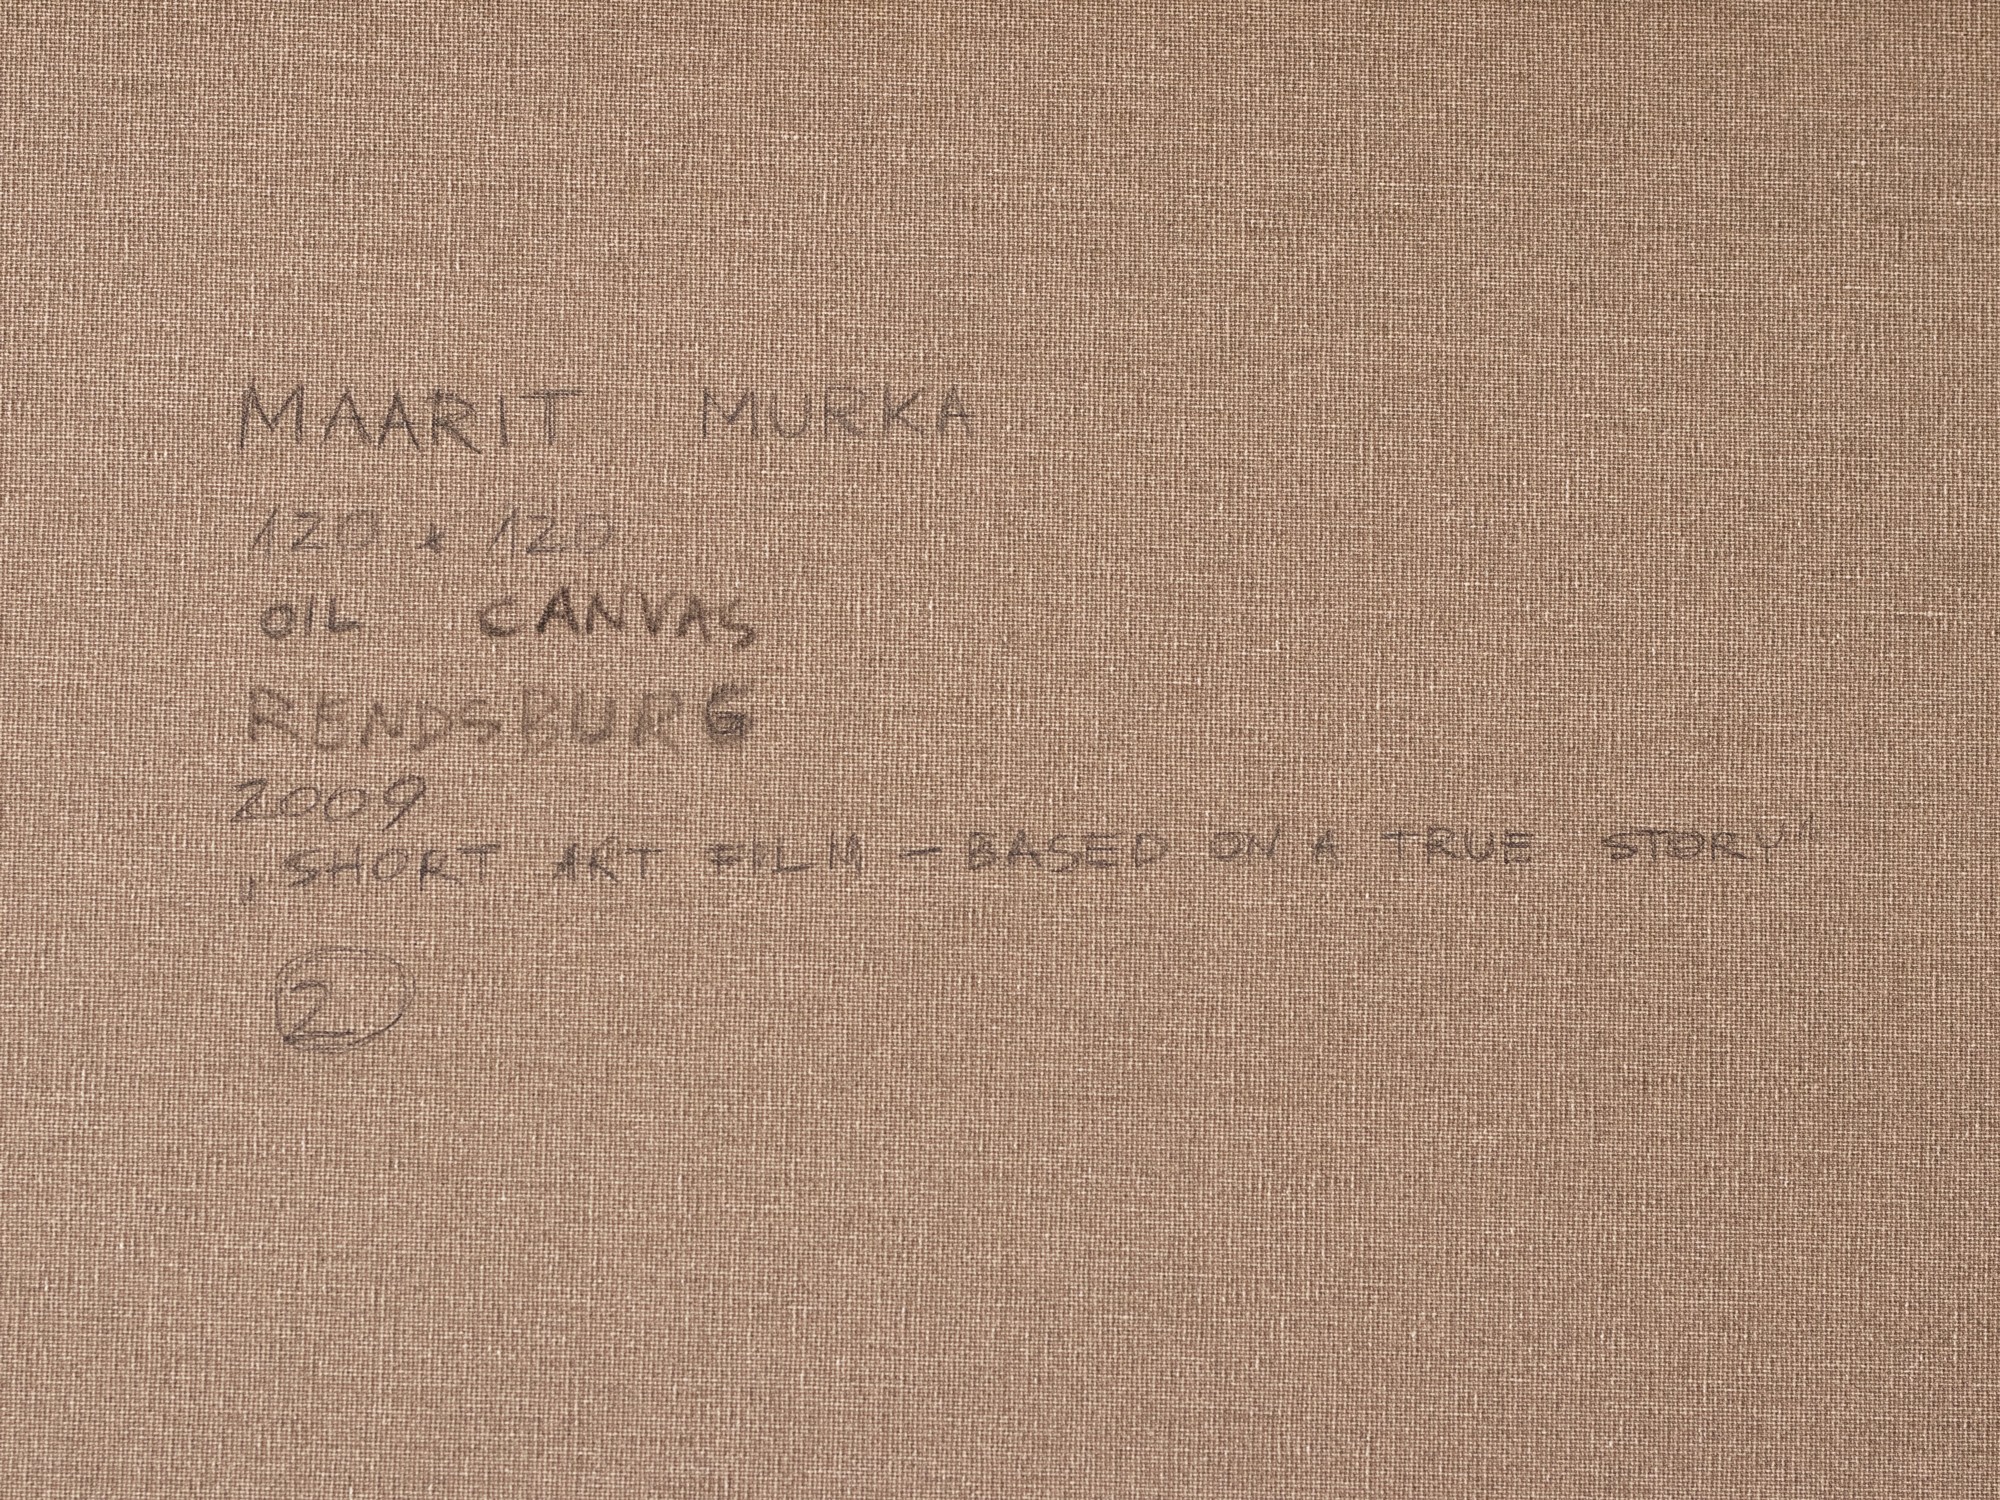 MAARIT MURKA
120 * 120
OIL CANVAS
RENDSBURG
2009
"SHORT ART FILM – BASED ON A TRUE STORY"
2